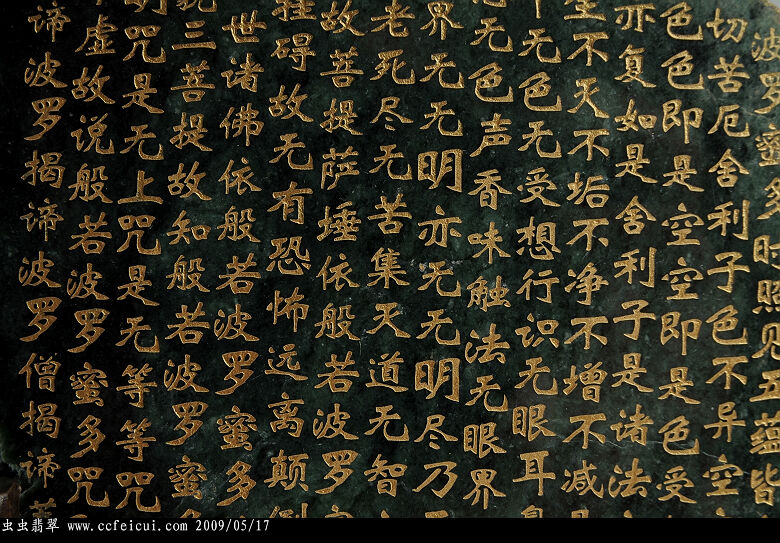 波罗蜜多时照见五蕴皆
切苦厄舍利子色不异空
色色即是空空即是色受
亦复如是舍利子是诸法
生不灭不垢不净不增不减
中无色无受想行识无眼耳
无色声香味触法无眼界
界无无明亦无无明尽乃
老死尽无苦集灭道无智
故菩提萨埵依般若波罗
挂碍故无有恐怖远离颠倒
世诸佛依般若波罗蜜多
藐三菩提故知般若波罗蜜多
明咒是无上咒是无等等咒
虚故说般若波罗蜜多咒
谛波罗揭谛波罗僧揭谛
虫虫翡翠 www.ccfeicui.com 2009/05/17